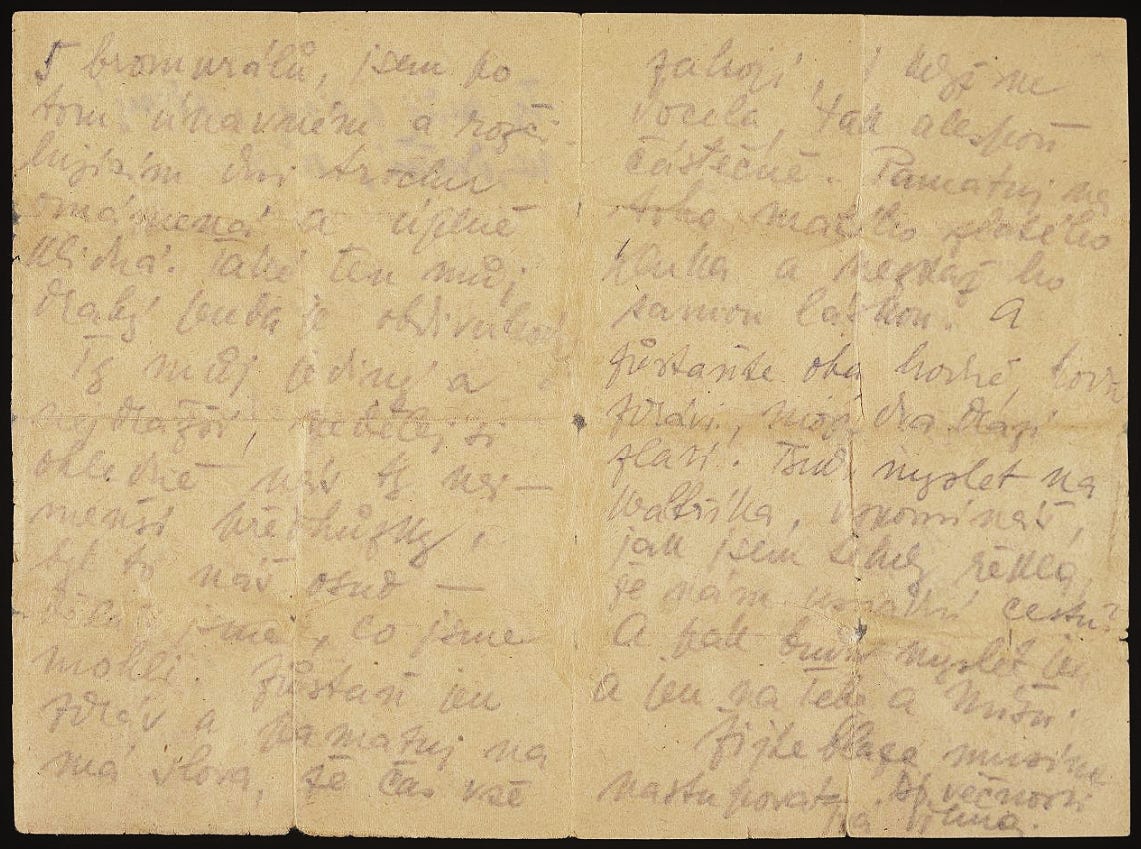 5 bromurálů, jsem po
tom únavném a rozči
lujícím dni trochu
omámená a úplně
klidná. Také ten můj
drahý je obdivuhod
Ty můj jediný a
nejdražší, nedělej si
ohledně nás ty nej-
menší
byl to náš osud —
dělali jsme, co jsme
mohli. Zůstaň jen
zdráv a pamatuj na
má slova, že čas vše
zahojí, i když ne
docela, tak alespoň
částečně. Pamatuj na
toho malého zlatého
kluka a nezkaž ho
samou láskou. A
zůstaňte oba hodně, hodně
zdrávi, moji dva drazí
zlatí. Budu myslet na
vzpomínáš,
jak jsem tehdy řekla,
že nám ukrátí cestu?
A pak budu myslet jen
a jen na Tebe a Míšu.
Žijte blaze musíme
nastupovat. Do věčnosti
Vilma.